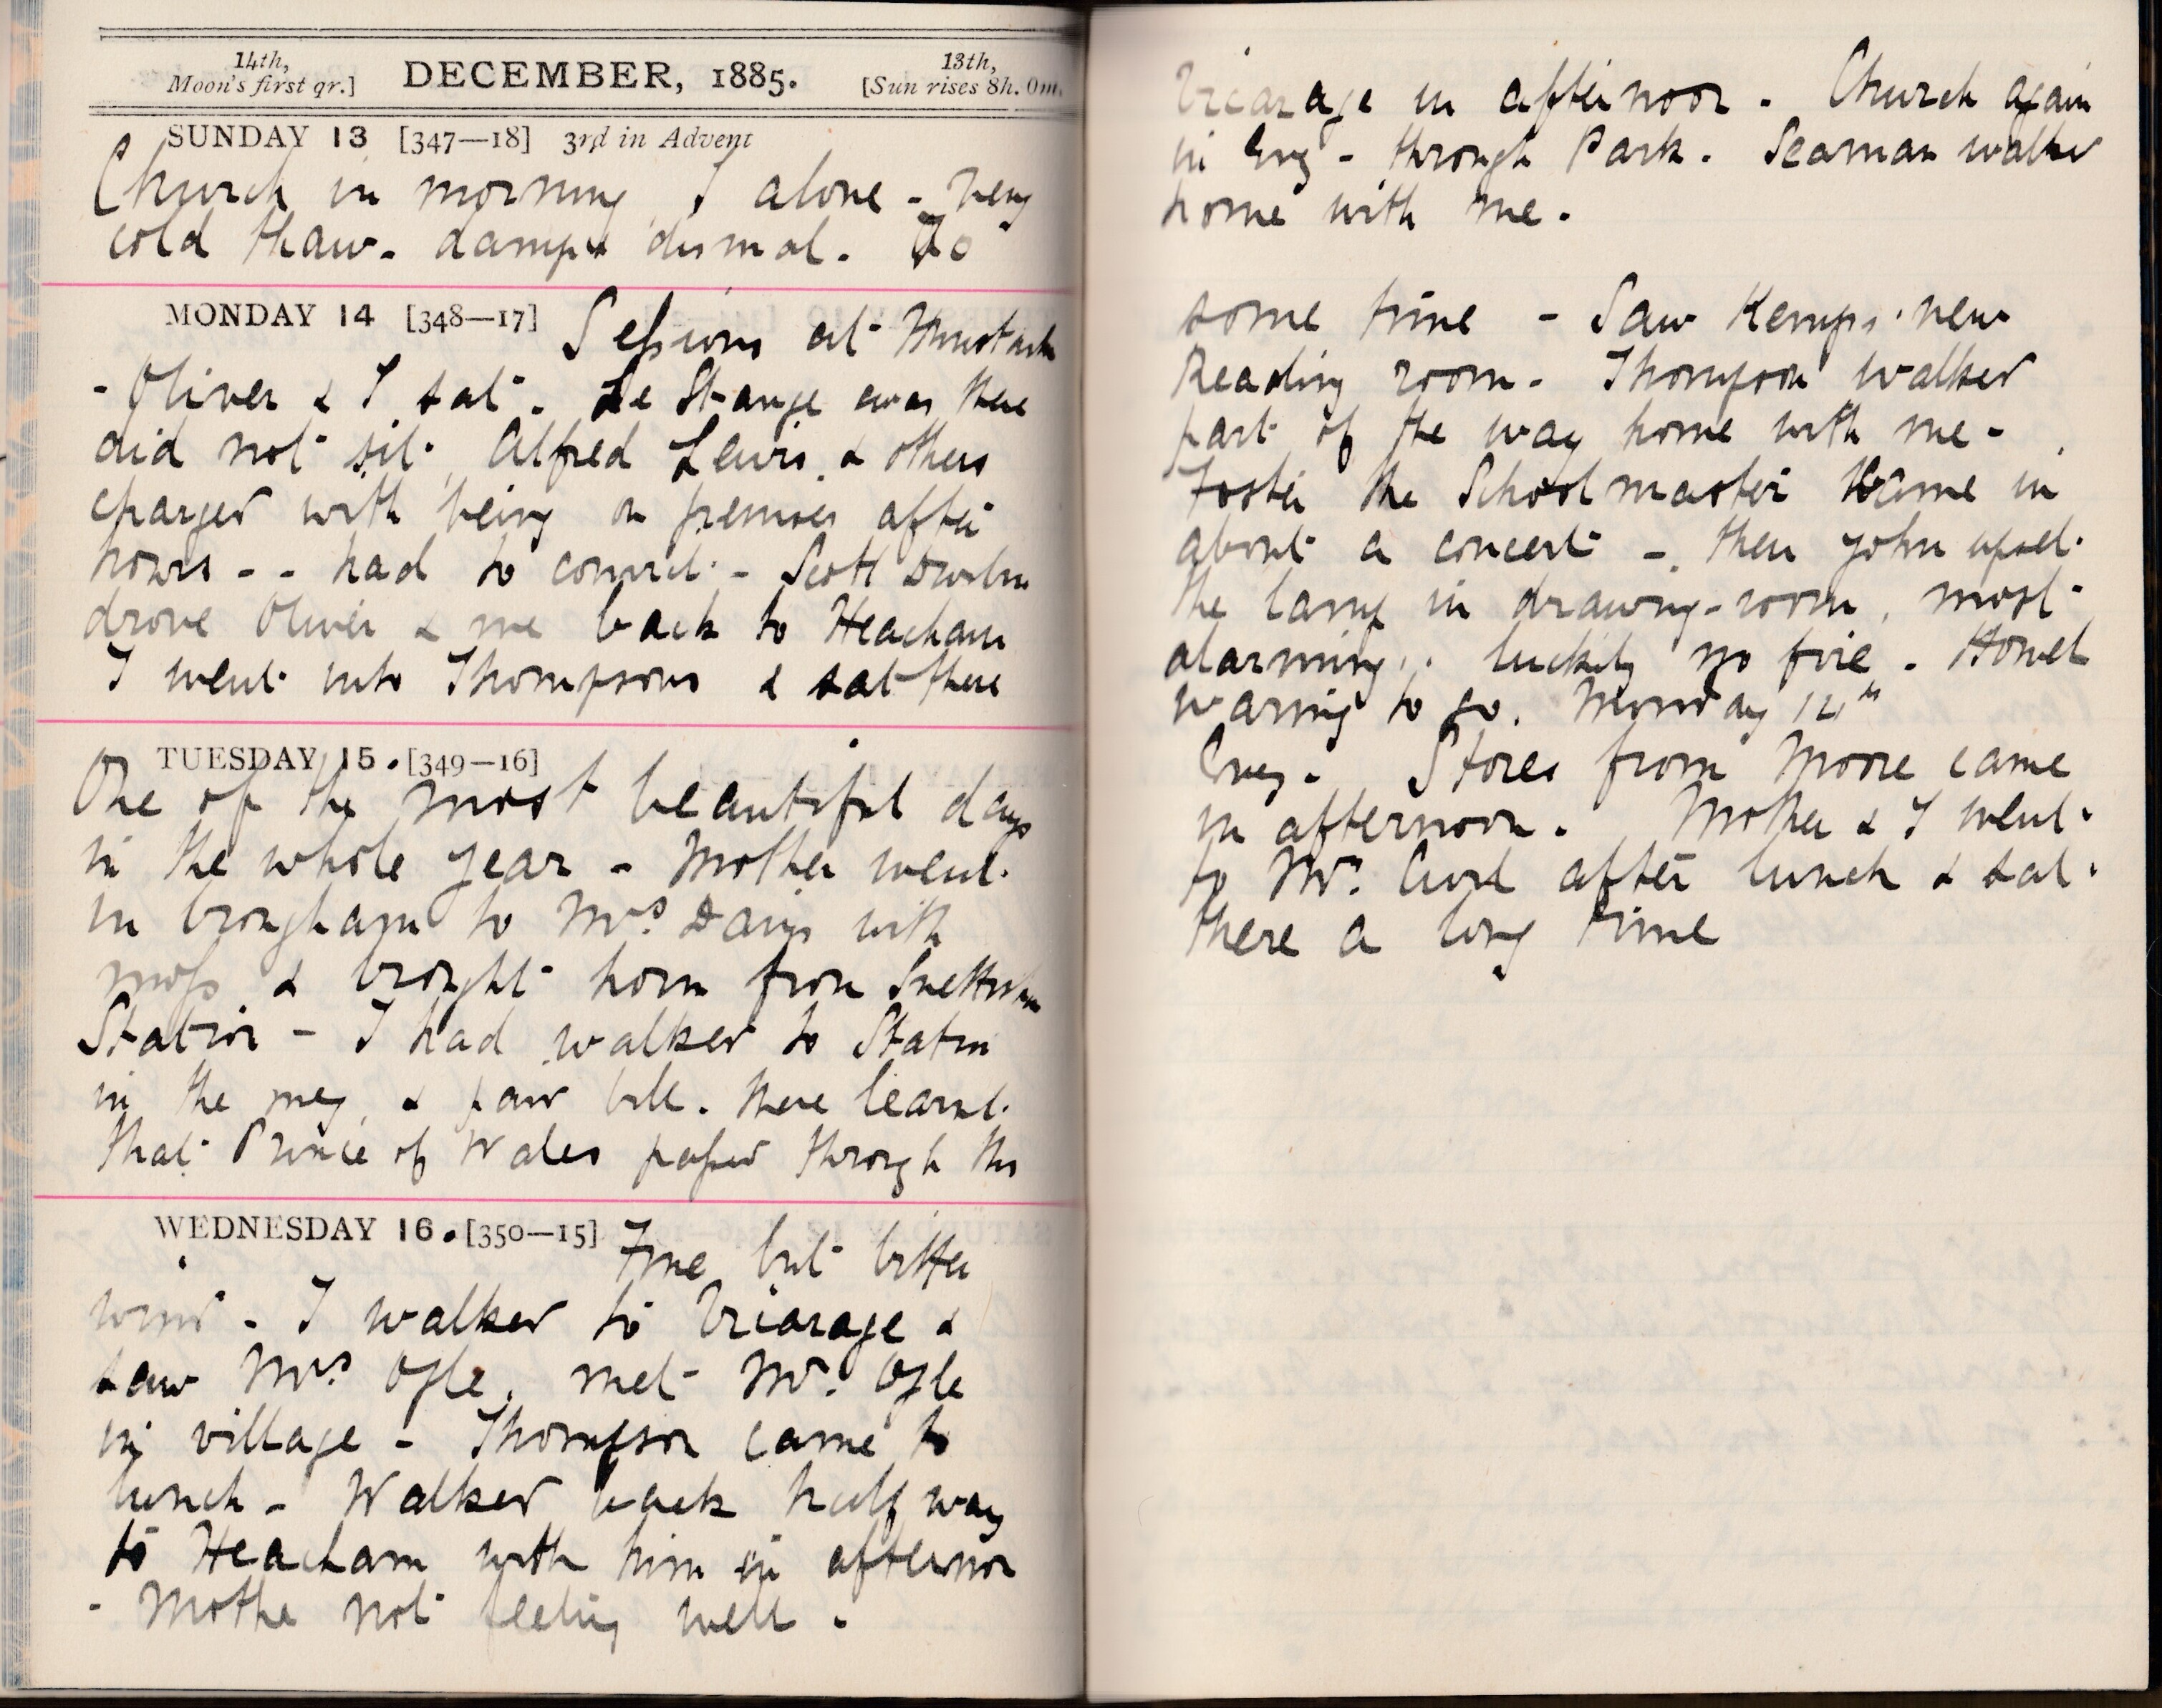 14th,
Moon's first qr.]
DECEMBER, 1885.
13th,
[Sun rises 8h. 0m.
SUNDAY 13 [347—18] 3rd in Advent
Church in morning, I alone - very
cold thaw - damp & dismal. To
MONDAY 14 [348—17] Sessions at
- Oliver & I sat. Le Strange was there
did not sit. Alfred Lewis & others
charged with being on premises after
hours - - had to convict - Scott
drove Oliver & me back to Heacham
I went into Thompsons & sat there
TUESDAY 15. [349—16]
One of the most beautiful days
in the whole year - Mother went
in brougham to Mrs. Davis with
moss & brought home from Snettisham
Station - I had walked to Station
in the mng, & paid bill. there learnt
that Prince of Wales passed through this
WEDNESDAY 16. [350—15] Fine but bitter
wind - I walked to Vicarage &
saw Mrs. Ogle, met Mr. Ogle
in village - Thompson came to
lunch - Walked back half way
to Heacham with him in afternoon
- Mother not feeling well -
Vicarage in afternoon - Church again
in Evng - through Park. Seaman walked
home with me.
some time - Saw Kemps new
Reading room - Thompson walked
part of the way home with me -
Foster the Schoolmaster came in
about a concert - then John upset
the lamp in drawing-room, most
alarming, luckily no fire -
warning to go. Monday 14th
Evng. Stores from Moore came
in afternoon. Mother & I went
to Mr. after lunch & sat
there a long time